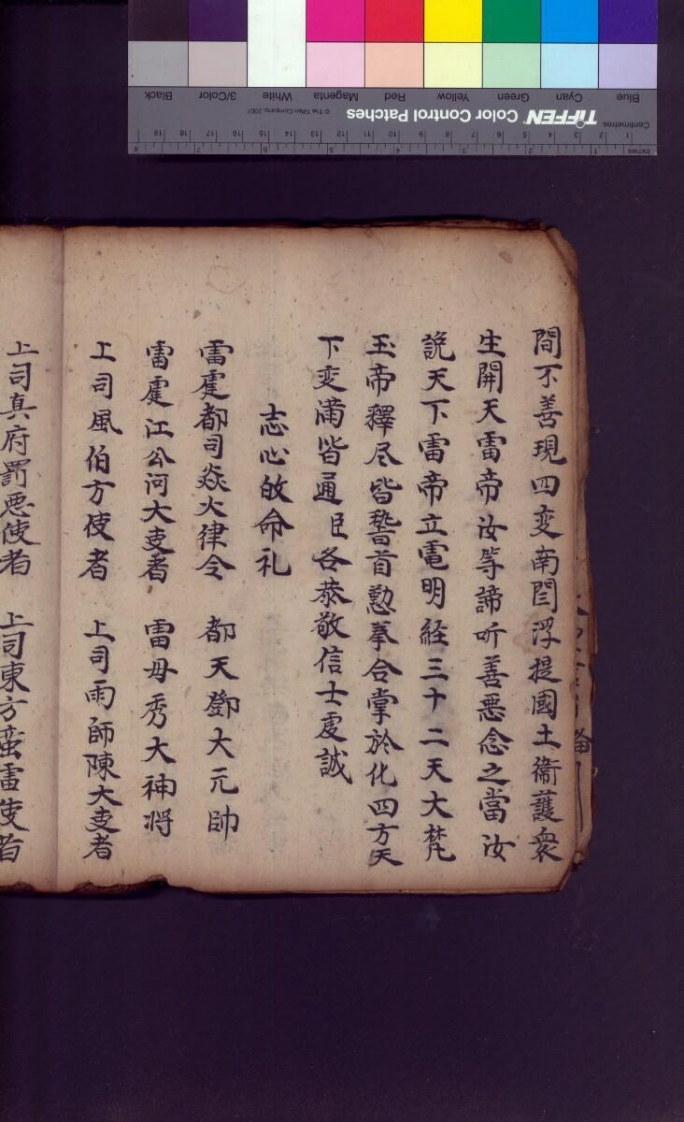 間不善現四変南閻浮提國土衛護衆
生開天雷帝汝等諦听善惡念之當汝
説天下雷帝立電明經三十二天大梵
玉帝釋尽皆稽首懃拳合掌於化四方天
下变滿皆通臣各恭敬信士虔誠
志心皈命礼
雷霆都司焱火律令 都天鄧大元帥
雷霆江公河大吏者 雷毋秀大神将
上司風伯方使者 上司雨師陳大吏者
上司真府罰悪使者 上司東方蛮雷使者
Blue Cyan Green Yellow Red Magenta White 3/Color Black
TIFFEN Color Control Patches © The Tiffen Company, 2007
Centimetres 1 2 3 4 5 6 7 8 9 10 11 12 13 14 15 16 17 18 19
Inches 1 2 3 4 5 6 7 8